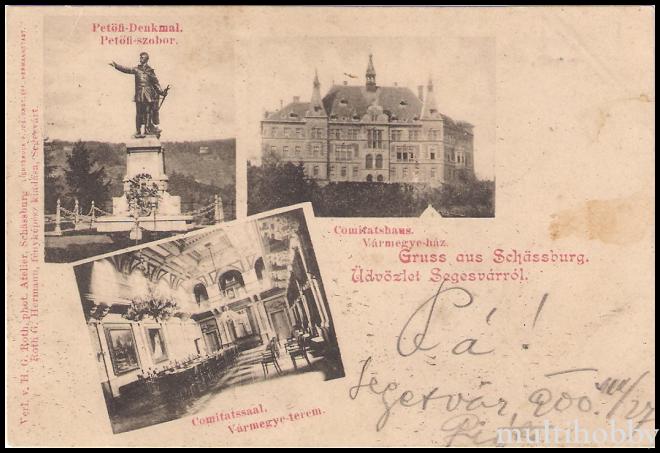 Petöfi-Denkmal.
Petöfi-szobor.
Comitatshaus.
Vármegye-ház.
Gruss aus Schässburg.
Üdvözlet Segesvárról.
Comitatssaal.
Vármegye-terem.
Verl. v. H. G. Roth, phot. Atelier, Schässburg
Roth G. Hermann, fényképész kiadása, Segesvárt.
Pá!
Segesvár 900
multihobby